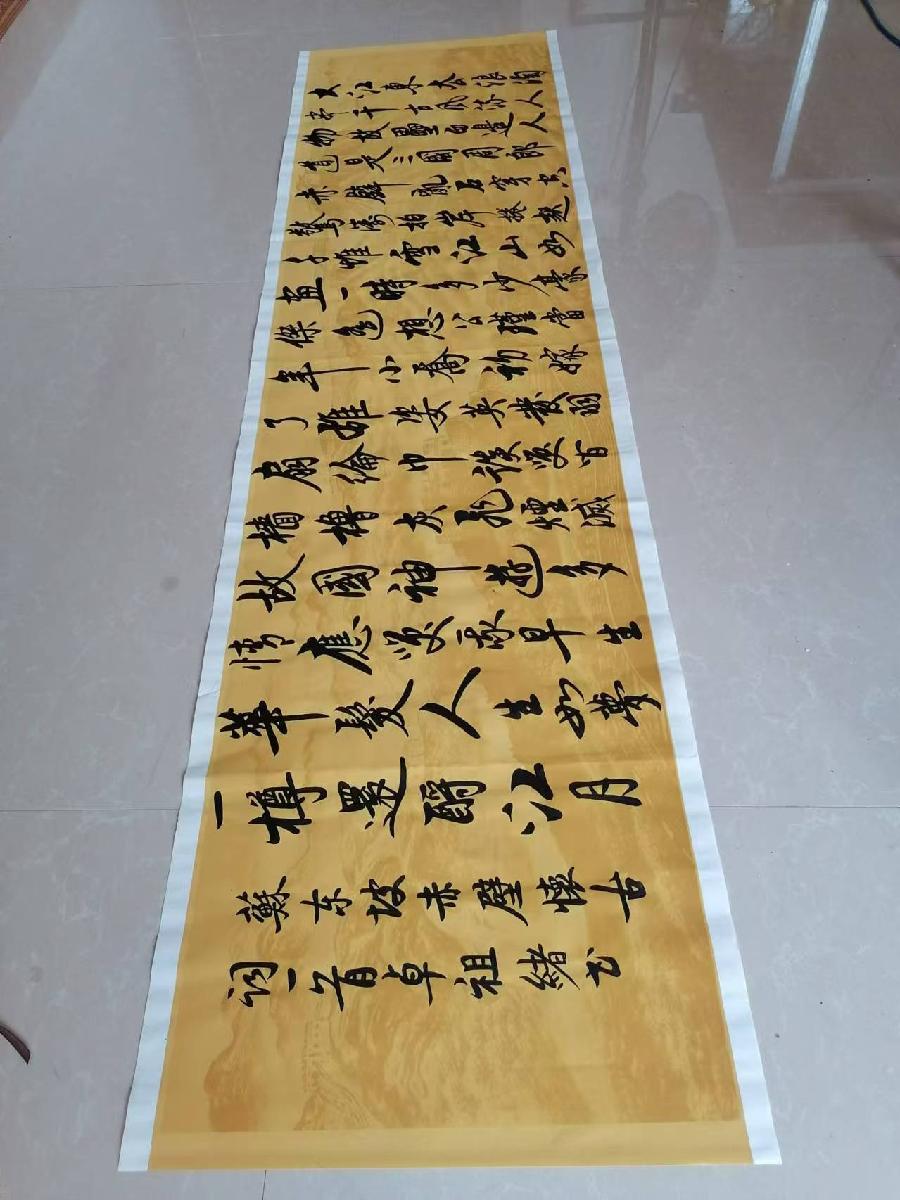 大江東去浪淘
盡千古風流人
物故壘西邊人
道是三國周郎
赤壁亂石穿空
驚濤拍岸捲起
千堆雪江山如
畫一時多少豪
傑遙想公瑾當
年小喬初嫁
了雄姿英發羽
扇綸巾談笑間
檣櫓灰飛煙滅
故國神遊多
情應笑我早生
華髮人生如夢
一樽還酹江月
蘇东坡赤壁懷古
词一首卓祖緒书